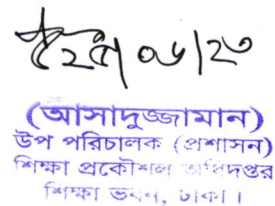 ২৫/০৬/২৩
(আসাদুজ্জামান)
উপ পরিচালক (প্রশাসন)
শিক্ষা প্রকৌশল অধিদপ্তর
শিক্ষা ভবন, ঢাকা।